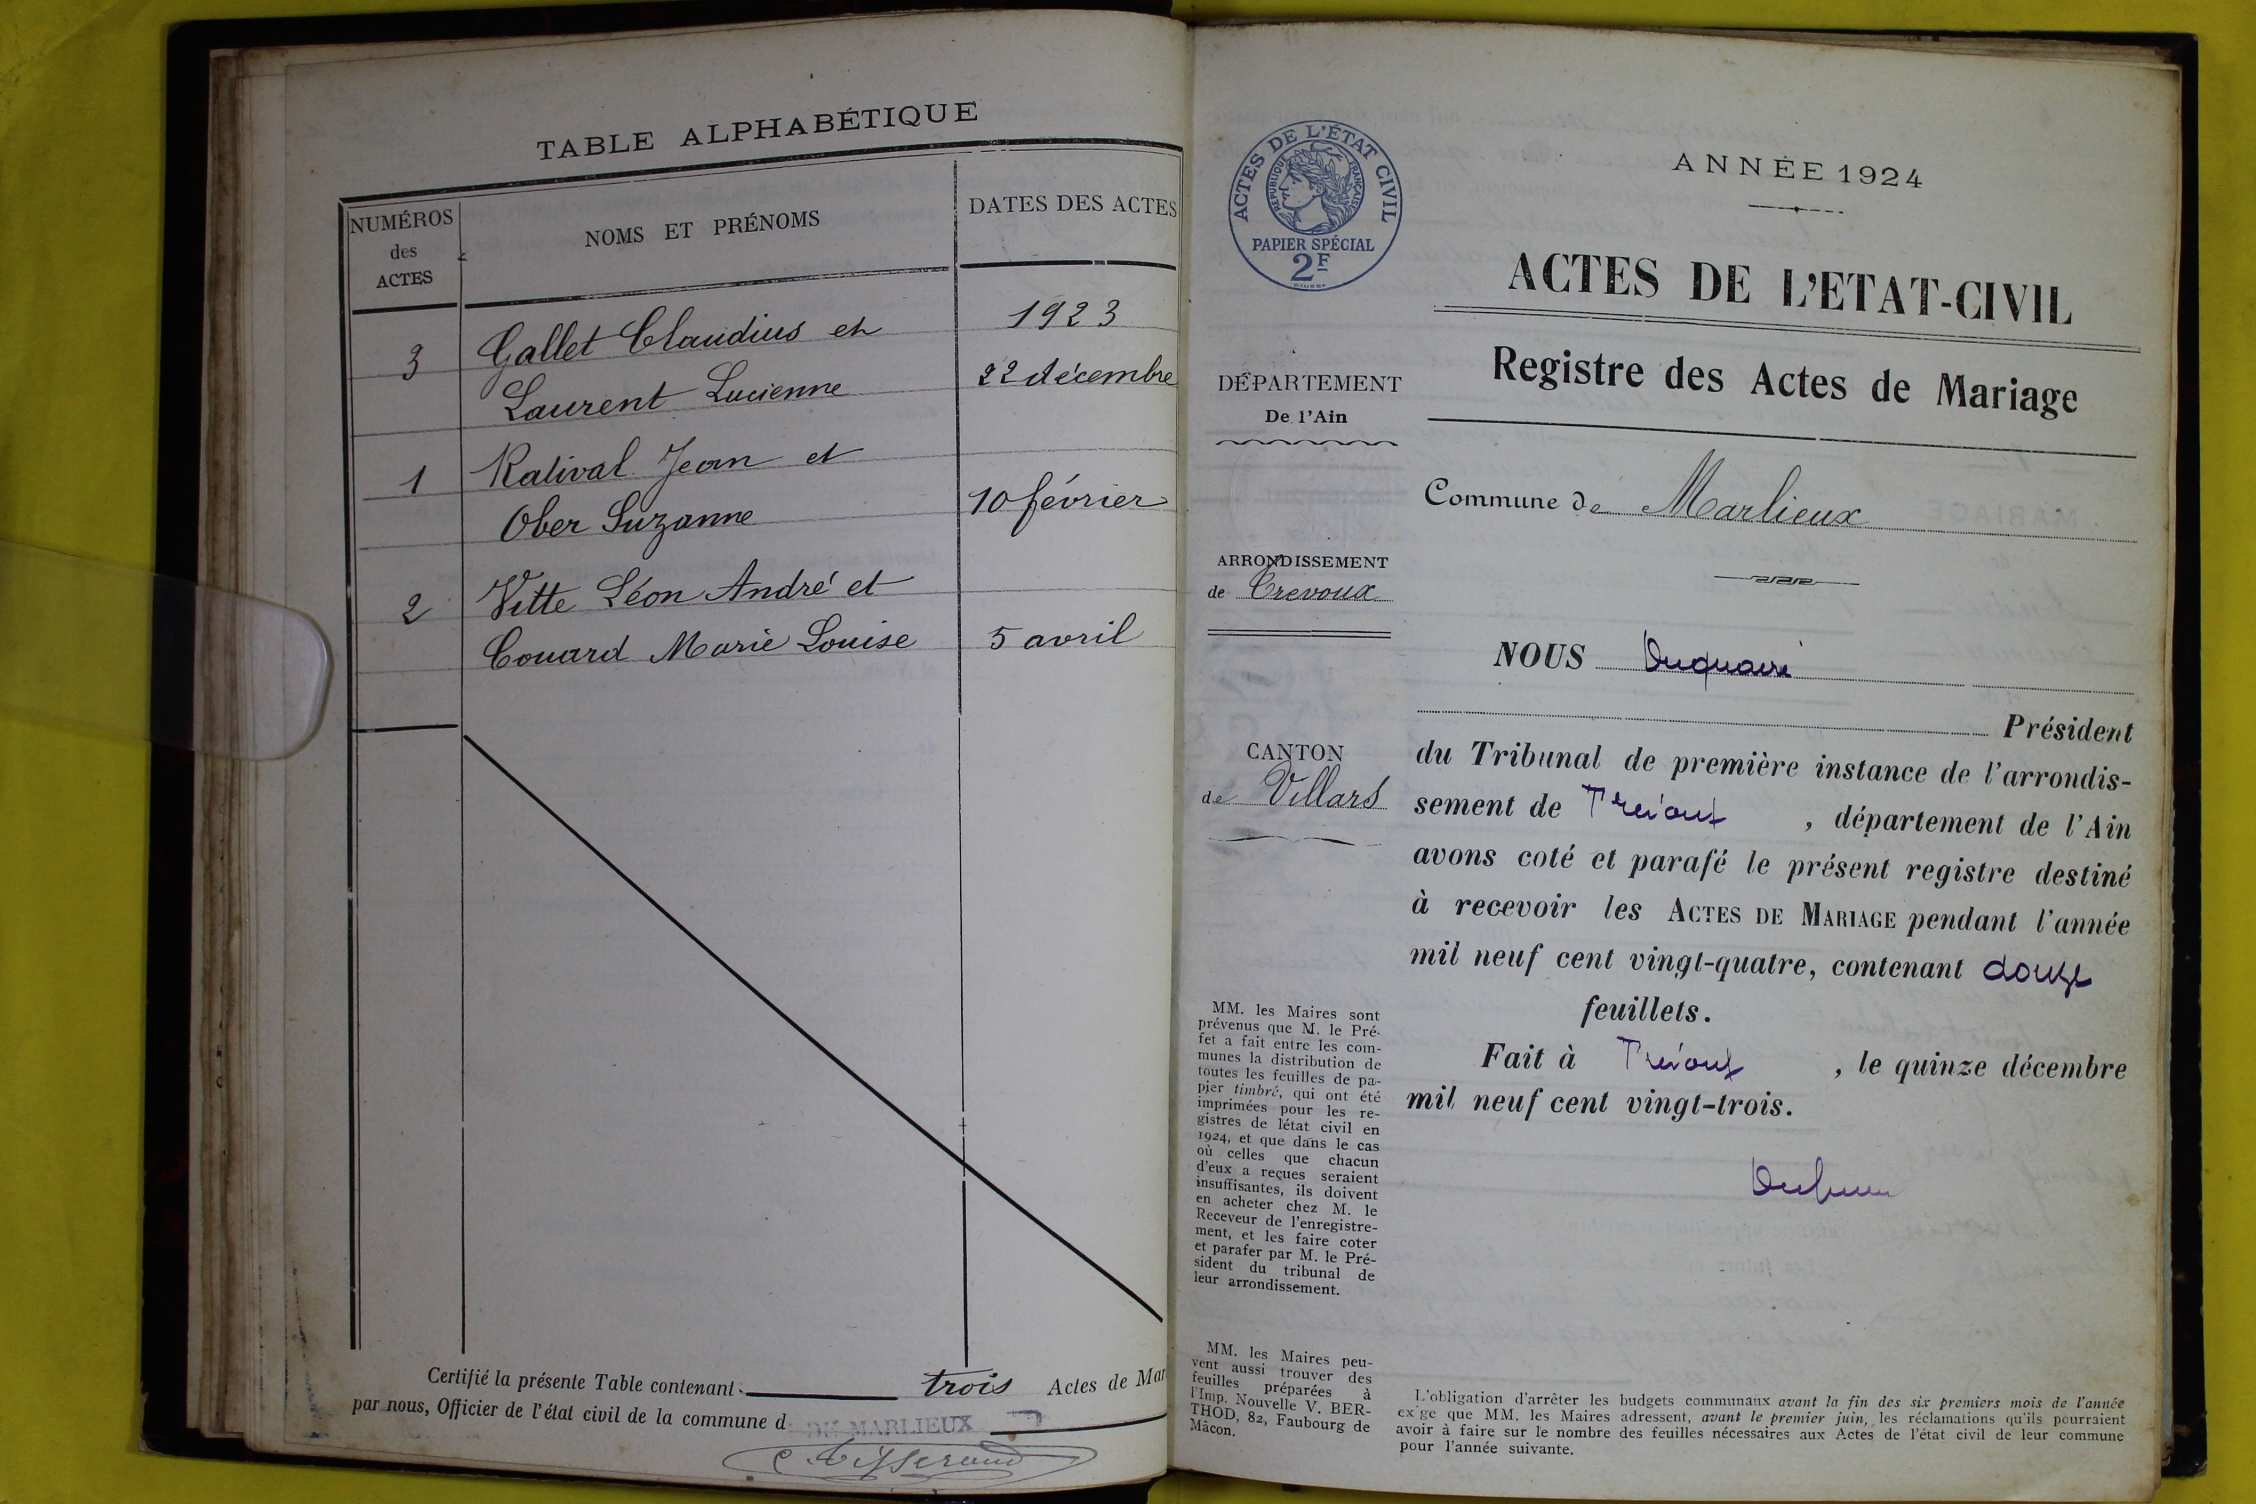 TABLE ALPHABÉTIQUE
NUMÉROS
des
ACTES
NOMS ET PRÉNOMS
DATES DES ACTES
1923
3 Gallet Claudius et
Laurent Lucienne 22 décembre
1 Ralival Jean et
Ober Suzanne 10 février
2 Vitte Léon André et
Couard Marie Louise 5 avril
Certifié la présente Table contenant trois Actes de Mar
par nous, Officier de l'état civil de la commune d DE MARLIEUX
C Tisserand
ACTES DE L'ÉTAT CIVIL
RÉPUBLIQUE FRANÇAISE
PAPIER SPÉCIAL
2F
ANNÉE 1924
ACTES DE L'ETAT-CIVIL
Registre des Actes de Mariage
DÉPARTEMENT
De l'Ain
Commune de Marlieux
ARRONDISSEMENT
de Trévoux
CANTON
de Villars
NOUS
Président
du Tribunal de première instance de l'arrondis-
sement de Trévoux, département de l'Ain
avons coté et parafé le présent registre destiné
à recevoir les ACTES DE MARIAGE pendant l'année
mil neuf cent vingt-quatre, contenant douze
feuillets.
Fait à Trévoux, le quinze décembre
mil neuf cent vingt-trois.
MM. les Maires sont
prévenus que M. le Pré-
fet a fait entre les com-
munes la distribution de
toutes les feuilles de pa-
pier timbré, qui ont été
imprimées pour les re-
gistres de l'état civil en
1924, et que dans le cas
où celles que chacun
d'eux a reçues seraient
insuffisantes, ils doivent
en acheter chez M. le
Receveur de l'enregistre-
ment, et les faire coter
et parafer par M. le Pré-
sident du tribunal de
leur arrondissement.
MM. les Maires peu-
vent aussi trouver des
feuilles préparées à
l'Imp. Nouvelle V. BER-
THOD, 82, Faubourg de
Mâcon.
L'obligation d'arrêter les budgets communaux avant la fin des six premiers mois de l'année
ex'ge que MM. les Maires adressent, avant le premier juin, les réclamations qu'ils pourraient
avoir à faire sur le nombre des feuilles nécessaires aux Actes de l'état civil de leur commune
pour l'année suivante.